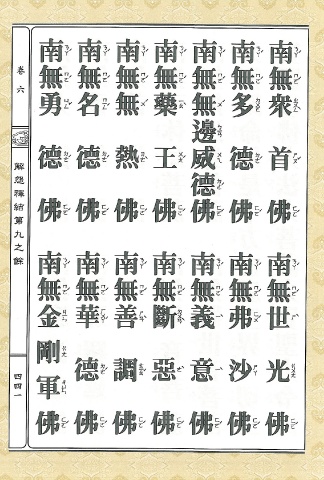 南無眾首佛 南無世光佛
南無多德佛 南無弗沙佛
南無無邊威德佛 南無義意佛
南無藥王佛 南無斷惡佛
南無無熱佛 南無善調佛
南無名德佛 南無華德佛
南無勇德佛 南無金剛軍佛
卷六
解怨釋結第九之餘
四四一